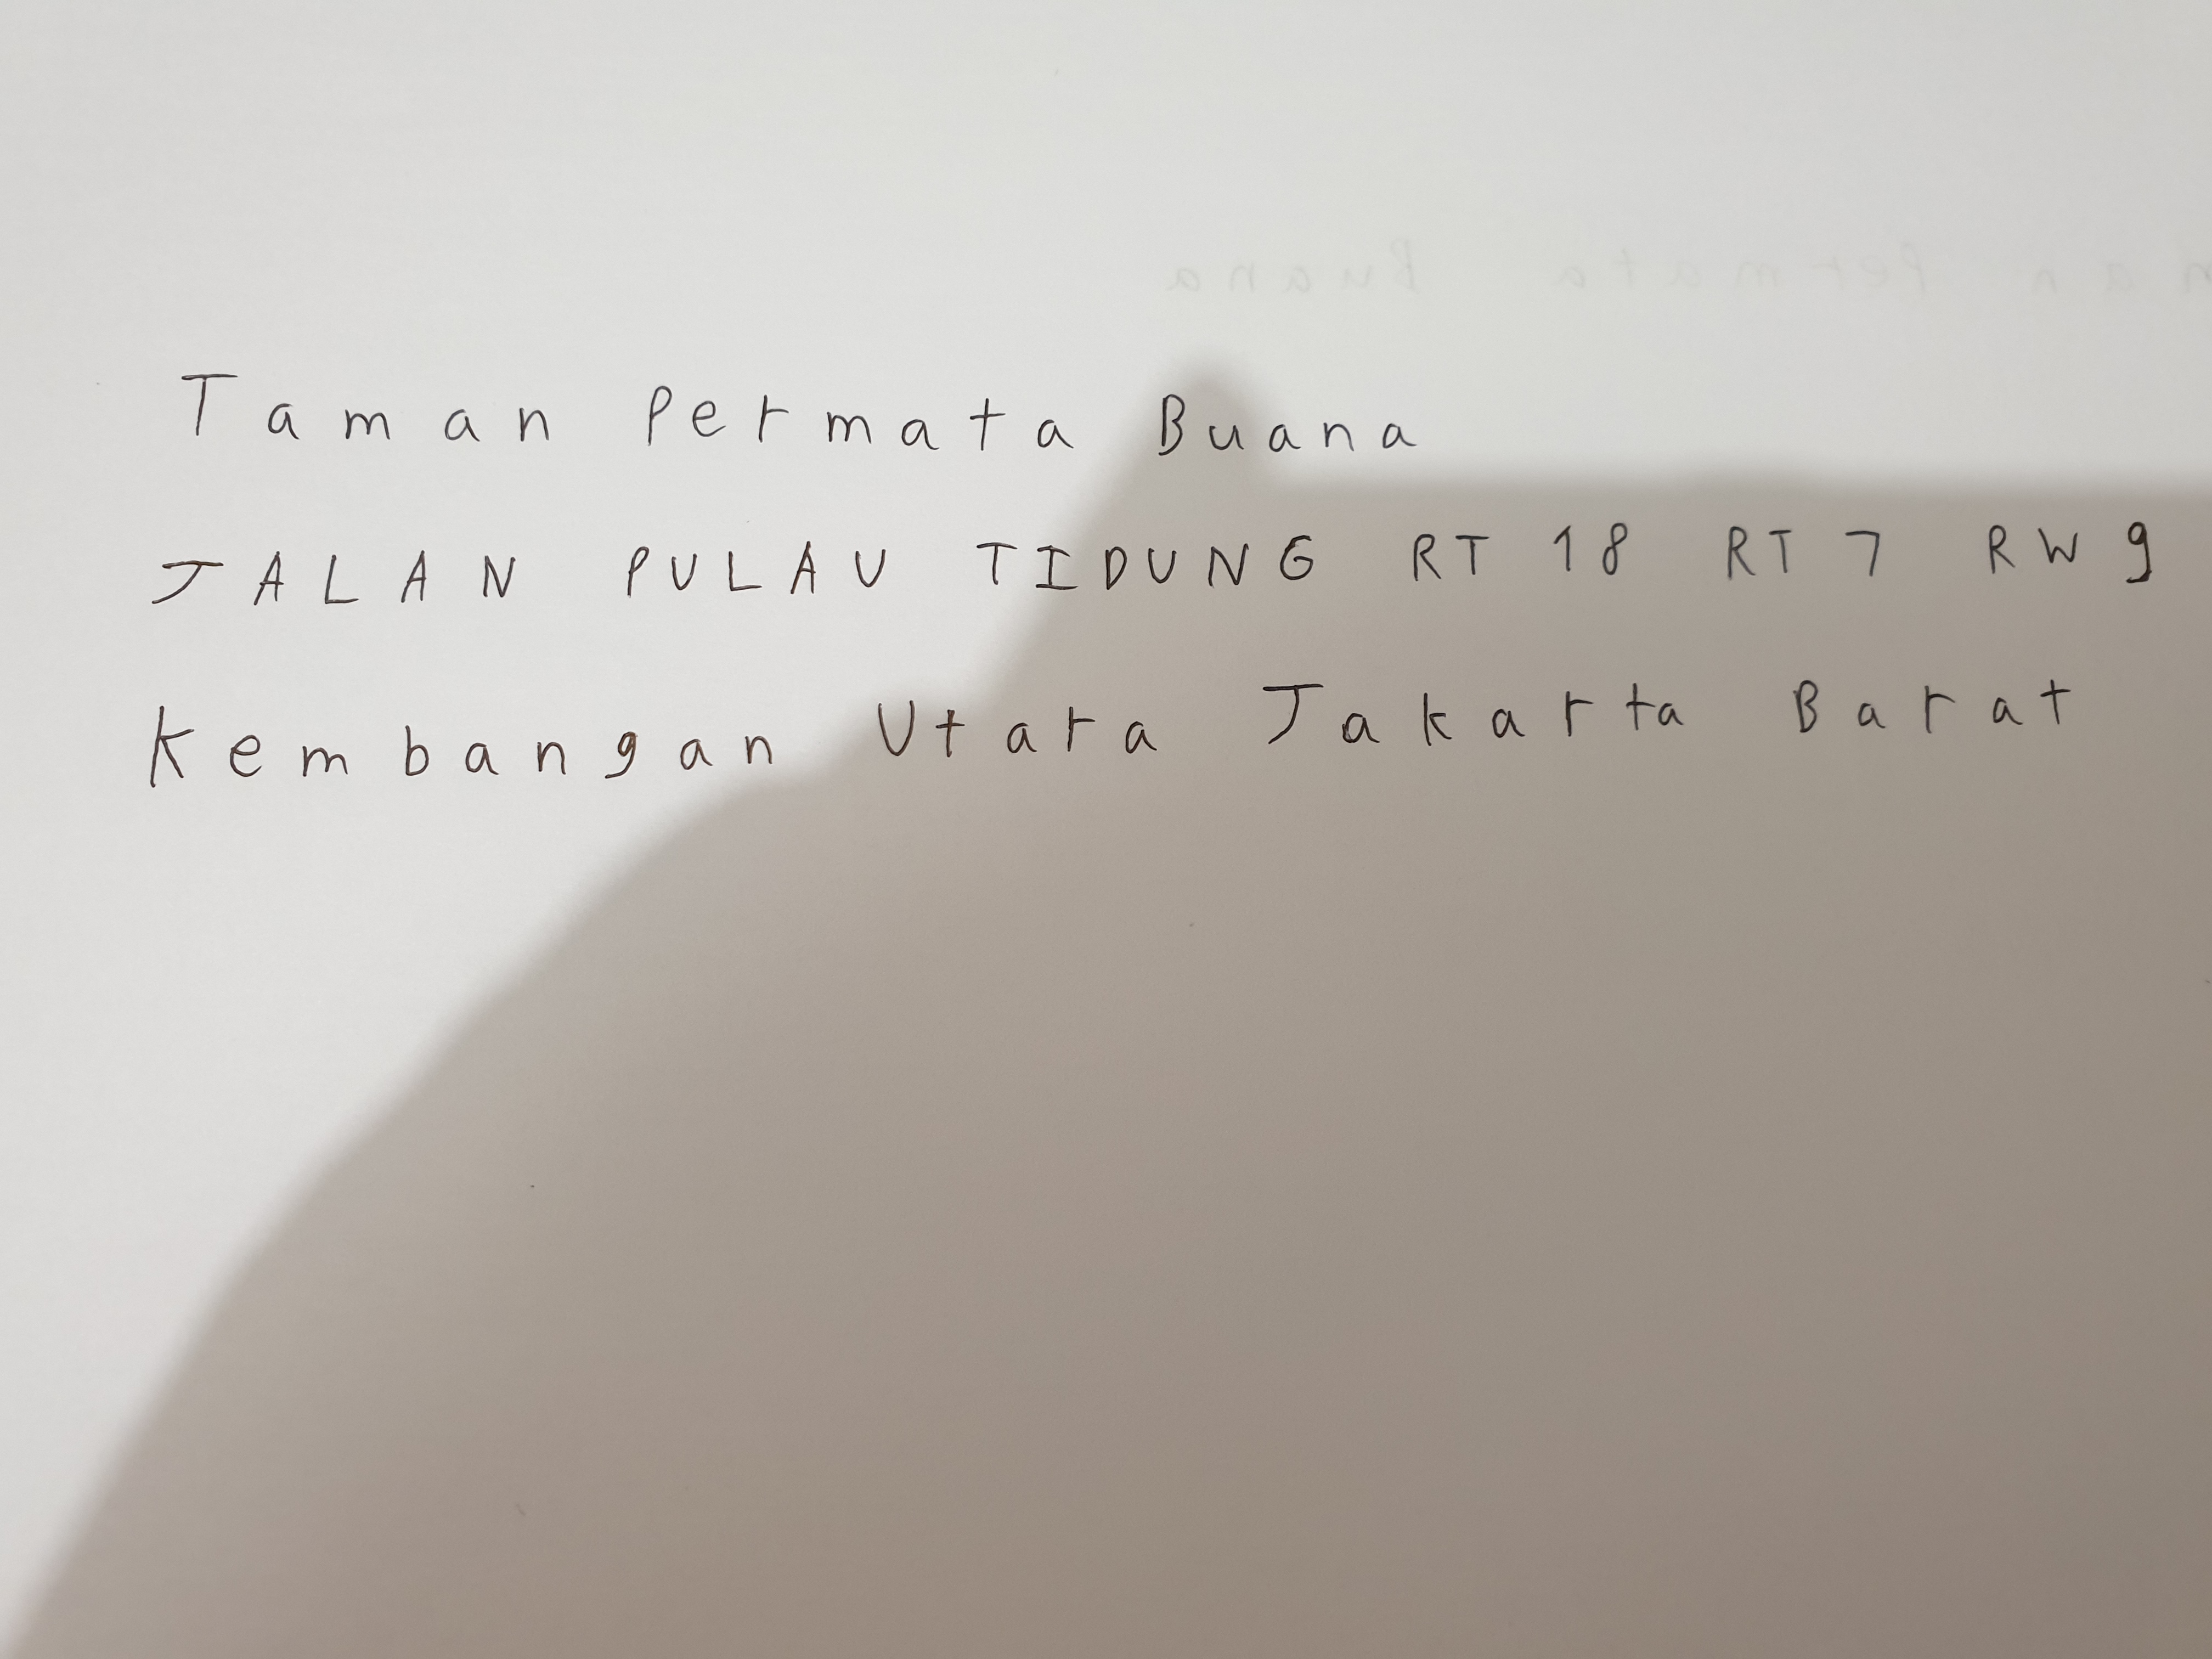 Taman Permata Buana
JALAN PULAU TIDUNG RT 18 RT 7 RW 9
Kembangan Utara Jakarta Barat